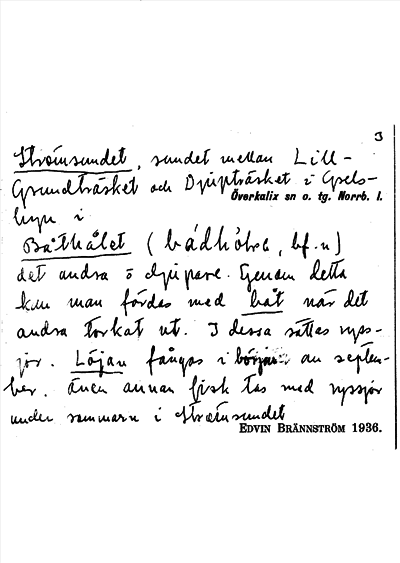 3
Strömsundet, sundet mellan Lill-
Grundträsket och Djupträsket i Gyels-
Överkalix sn o. tg. Norrb. l.
byn i
Båthålet (bådhólre, bf. n)
det andra ö djupare. Genom detta
kan man färdas med båt när det
andra torkat ut. I dessa sättas ryss-
jor. Löjan fångas i början av septem-
ber. Även annan fisk tas med ryssjor
under sommarn i Strömsundet
EDVIN BRÄNNSTRÖM 1936.